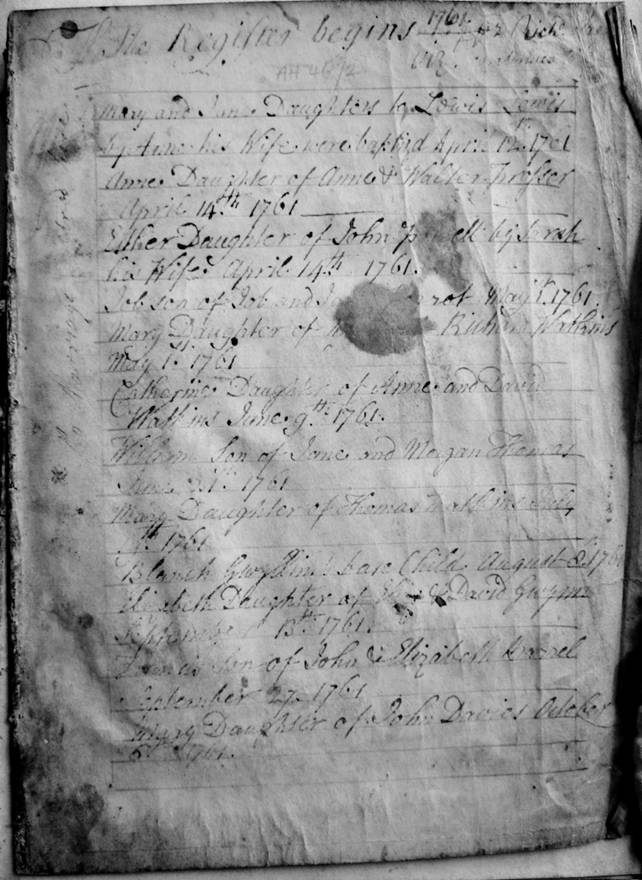 The Register begins 1761.
AH 46/2
Mary and Jane Daughters to Lewis Lewis
by Anne his Wife were baptisd April 12th 1761
Anne Daughter of Anne & Walter Prosser
April 14th 1761
Esther Daughter of John by Sarah
his Wife April 14th 1761.
Job son of Job and May 1st 1761.
Mary Daughter of Richard Watkins
May 1st 1761
Catherine Daughter of Anne and David
Watkins June 9th 1761.
William Son of Jane and Morgan Thomas
June 1761
Mary Daughter of Thomas July
1761
Blanch base Child August 1761
Elizabeth Daughter of & David Gwynne
September 13th 1761.
Francis Son of John & Elizabeth
September 27 1761
Mary Daughter of John Davies October
6th 1761.